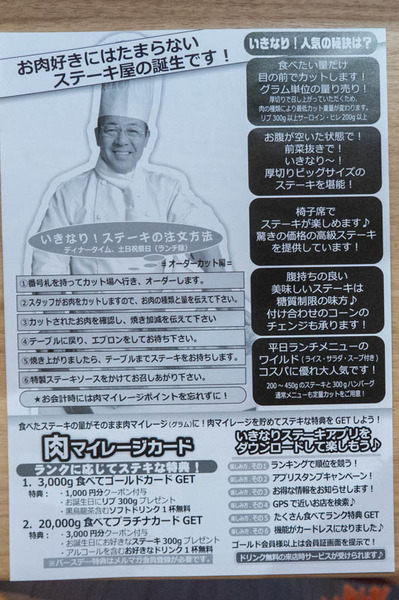 お肉好きにはたまらない
ステーキ屋の誕生です！
いきなり！ステーキの注文方法
ディナータイム、土日祝祭日（ランチ除）
＝オーダーカット編＝
①番号札を持ってカット場へ行き、オーダーします。
②スタッフがお肉をカットしますので、お肉の種類と量を伝えて下さい
③カットされたお肉を確認し、焼き加減を伝えて下さい
④テーブルに戻り、エプロンをしてお待ち下さい。
⑤焼き上がりましたら、テーブルまでステーキをお持ちします。
⑥特製ステーキソースをかけてお召しあがり下さい。
★お会計時には肉マイレージポイントを忘れずに！
いきなり！人気の秘訣は？
食べたい量だけ
目の前でカットします！
グラム単位の量り売り！
厚切りで召し上がっていただくため、
肉の種類により最低カット重量が変わります。
リブ 300g以上サーロイン・ヒレ 200g以上
お腹が空いた状態で！
前菜抜きで！
いきなり～！
厚切りビッグサイズの
ステーキを堪能！
椅子席で
ステーキが楽しめます♪
驚きの価格の高級ステーキ
を提供しています！
腹持ちの良い
美味しいステーキは
糖質制限の味方♪
付け合わせのコーンの
チェンジも承ります！
平日ランチメニューの
ワイルド（ライス・サラダ・スープ付き）
コスパに優れ大人気です！
200～450gのステーキと300gハンバーグ
通常メニューも定量カットをご用意！
食べたステーキの量がそのまま肉マイレージ(グラム)に！肉マイレージを貯めてステキな特典をGETしよう！
肉マイレージカード
ランクに応じてステキな特典！
1. 3,000g 食べてゴールドカード GET
特典：・1,000円分クーポン付与
・お誕生日にリブ300gプレゼント
・黒烏龍茶含むソフトドリンク1杯無料
2. 20,000g 食べてプラチナカード GET
特典：・3,000円分クーポン付与
・お誕生日にお好きなステーキ300gプレゼント
・アルコールを含むお好きなドリンク1杯無料
※バースデー特典はメルマガ会員登録が必要です。
いきなりステーキアプリを
ダウンロードして楽しもう♪
楽しみ方、その1 ランキングで順位を競う！
楽しみ方、その2 アプリスタンプキャンペーン！
楽しみ方、その3 お得な情報をお知らせします！
楽しみ方、その4 GPSで近いお店を検索♪
楽しみ方、その5 たくさん食べてランク特典GET
楽しみ方、その6 機能がカードレスになりました♪
ゴールド会員様以上は会員証画面を提示で！
ドリンク無料の来店時サービスが受けられます♪